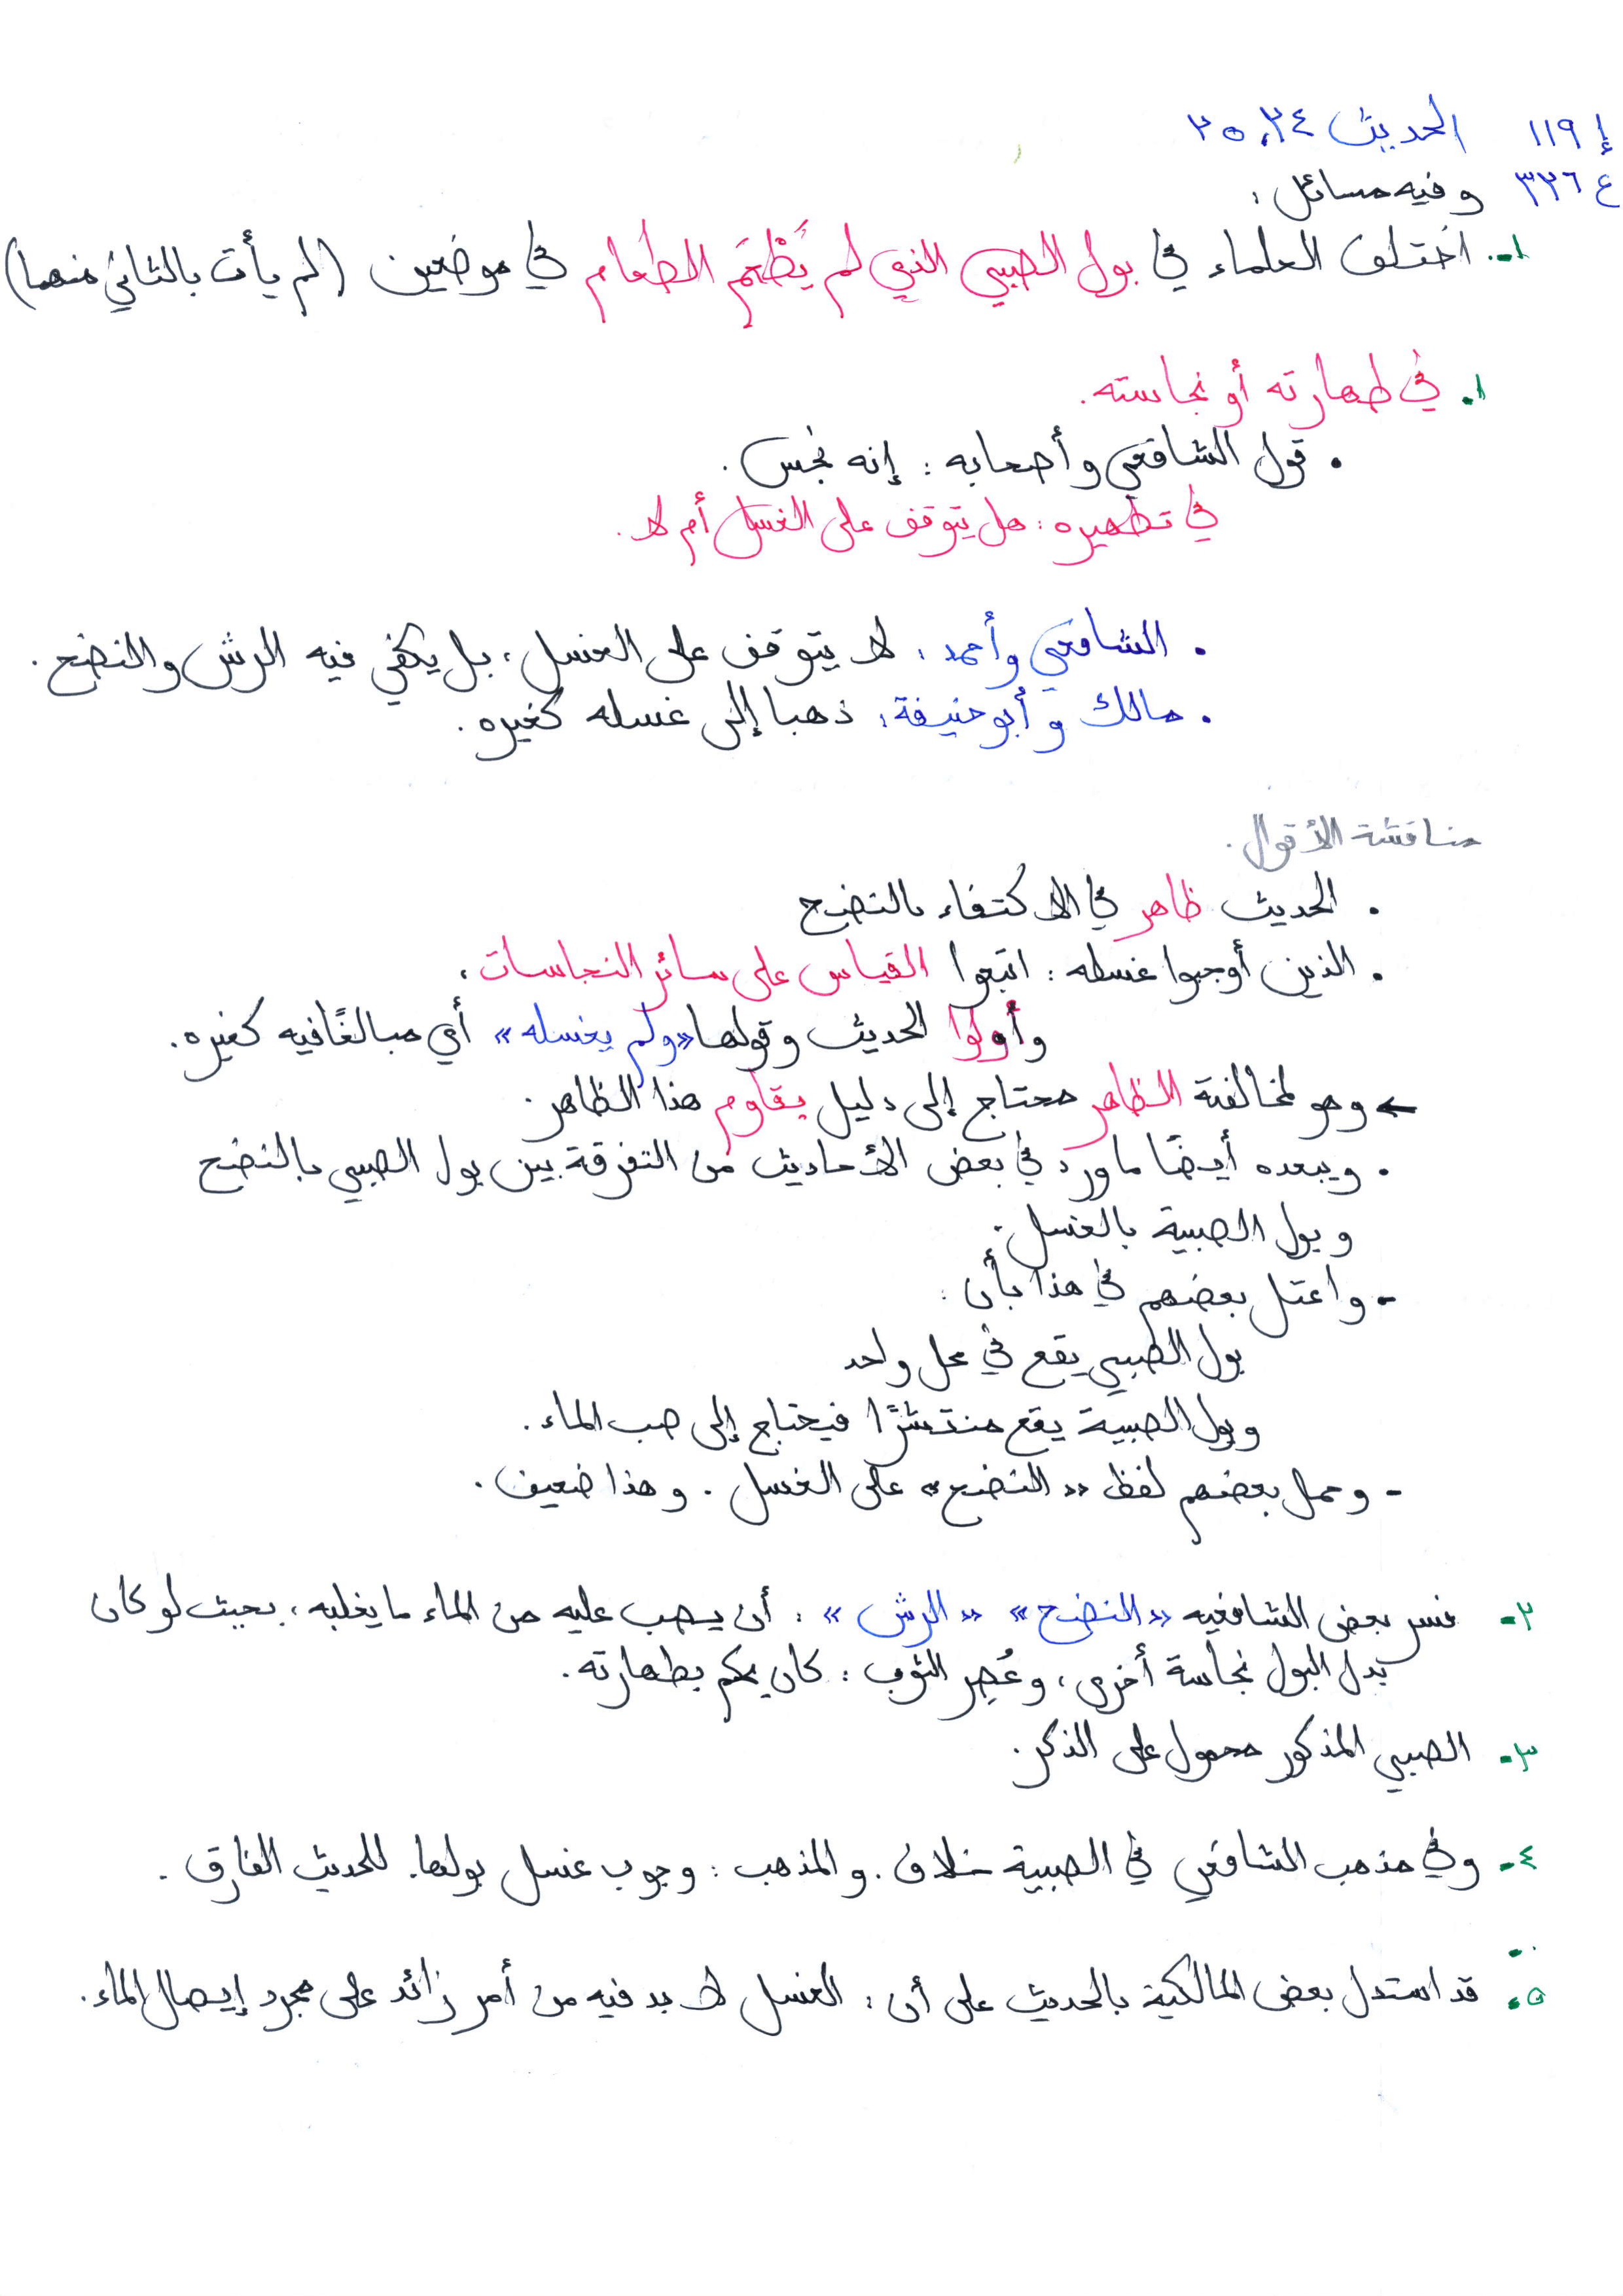 إ ١١٩ الحديث ٢٤، ٢٥
ع ٣٢٦ وفيه مسائل:
١- اختلف العلماء في بول الصبي الذي لم يَطْعَم الطعام في موضعين (لم يأت بالثاني منهما)
١. في طهارته أو نجاسته.
• قول الشافعي وأصحابه: إنه نجس.
في تطهيره: هل يتوقف على الغسل أم لا.
• الشافعي وأحمد: لا يتوقف على الغسل، بل يكفي فيه الرش والنضح.
• مالك وأبو حنيفة: ذهبا إلى غسله كغيره.
مناقشة الأقوال.
• الحديث ظاهر في الاكتفاء بالنضح
• الذين أوجبوا غسله: اتبعوا القياس على سائر النجاسات،
وأولوا الحديث وقولها «ولم يغسله» أي مبالغًا فيه كغيره.
← وهو لمخالفته الظاهر محتاج إلى دليل يقاوم هذا الظاهر.
• ويبعده أيضًا ما ورد في بعض الأحاديث من التفرقة بين بول الصبي بالنضح
وبول الصبية بالغسل.
- واعتل بعضهم في هذا بأن:
بول الصبي يقع في محل واحد
وبول الصبية يقع منتشرًا فيحتاج إلى صب الماء.
- وحمل بعضهم لفظ «النضح» على الغسل. وهذا ضعيف.
٢- فسر بعض الشافعيه «النضح» «الرش»: أن يصب عليه من الماء ما يغلبه، بحيث لو كان
بدل البول نجاسة أخرى، وعُصِر الثوب: كان يحكم بطهارته.
٣- الصبي المذكور محمول على الذكر.
٤- وفي مذهب الشافعي في الصبية خلاف. والمذهب: وجوب غسل بولها. للحديث الفارق.
٥. قد استدل بعض المالكية بالحديث على أن: الغسل لا بد فيه من أمر زائد على مجرد إيصال الماء.